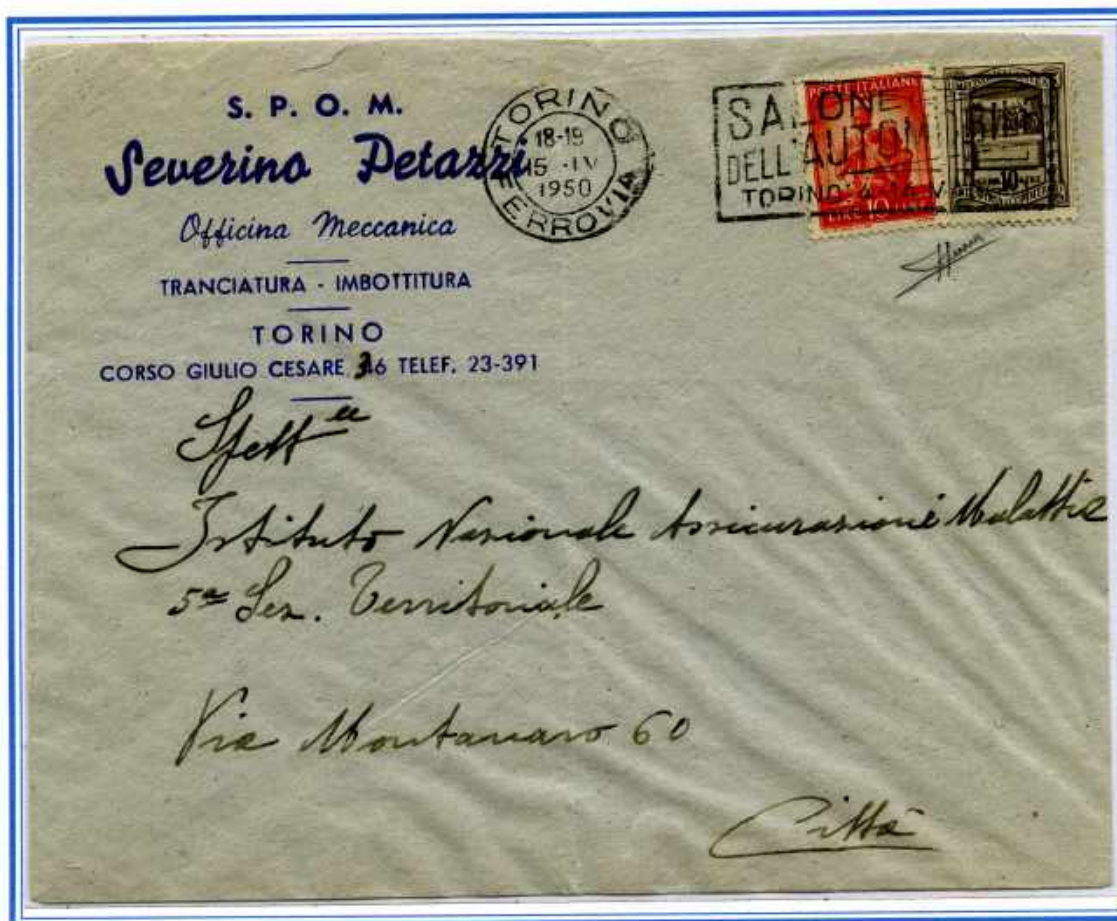 S. P. O. M.
Severino Petazzi
Officina Meccanica
TRANCIATURA - IMBOTTITURA
TORINO
CORSO GIULIO CESARE 36 TELEF. 23-391
TORINO FERROVIA
18-19
15 -IV
1950
SALONE
DELL'AUTOM
TORINO 4-14 V
POSTE ITALIANE
10
10
Spett le
Istituto Nazionale Assicurazione Malattie
5ª Sez. Territoriale
Via Montanaro 60
Città